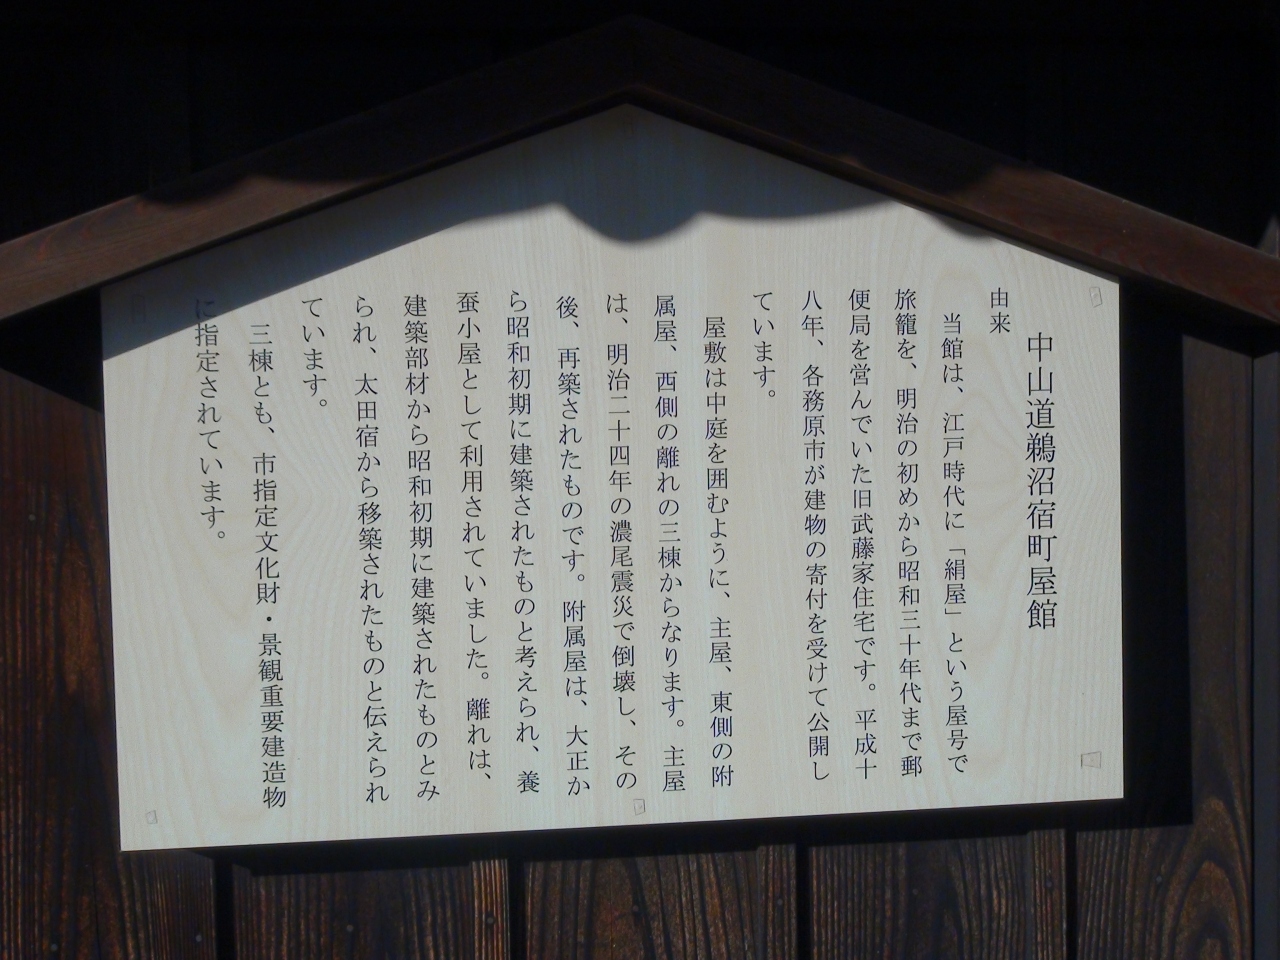 中山道鵜沼宿町屋館
由来
当館は、江戸時代に「絹屋」という屋号で
旅籠を、明治の初めから昭和三十年代まで郵
便局を営んでいた旧武藤家住宅です。平成十
八年、各務原市が建物の寄付を受けて公開し
ています。
屋敷は中庭を囲むように、主屋、東側の附
属屋、西側の離れの三棟からなります。主屋
は、明治二十四年の濃尾震災で倒壊し、その
後、再築されたものです。附属屋は、大正か
ら昭和初期に建築されたものと考えられ、養
蚕小屋として利用されていました。離れは、
建築部材から昭和初期に建築されたものとみ
られ、太田宿から移築されたものと伝えられ
ています。
三棟とも、市指定文化財・景観重要建造物
に指定されています。